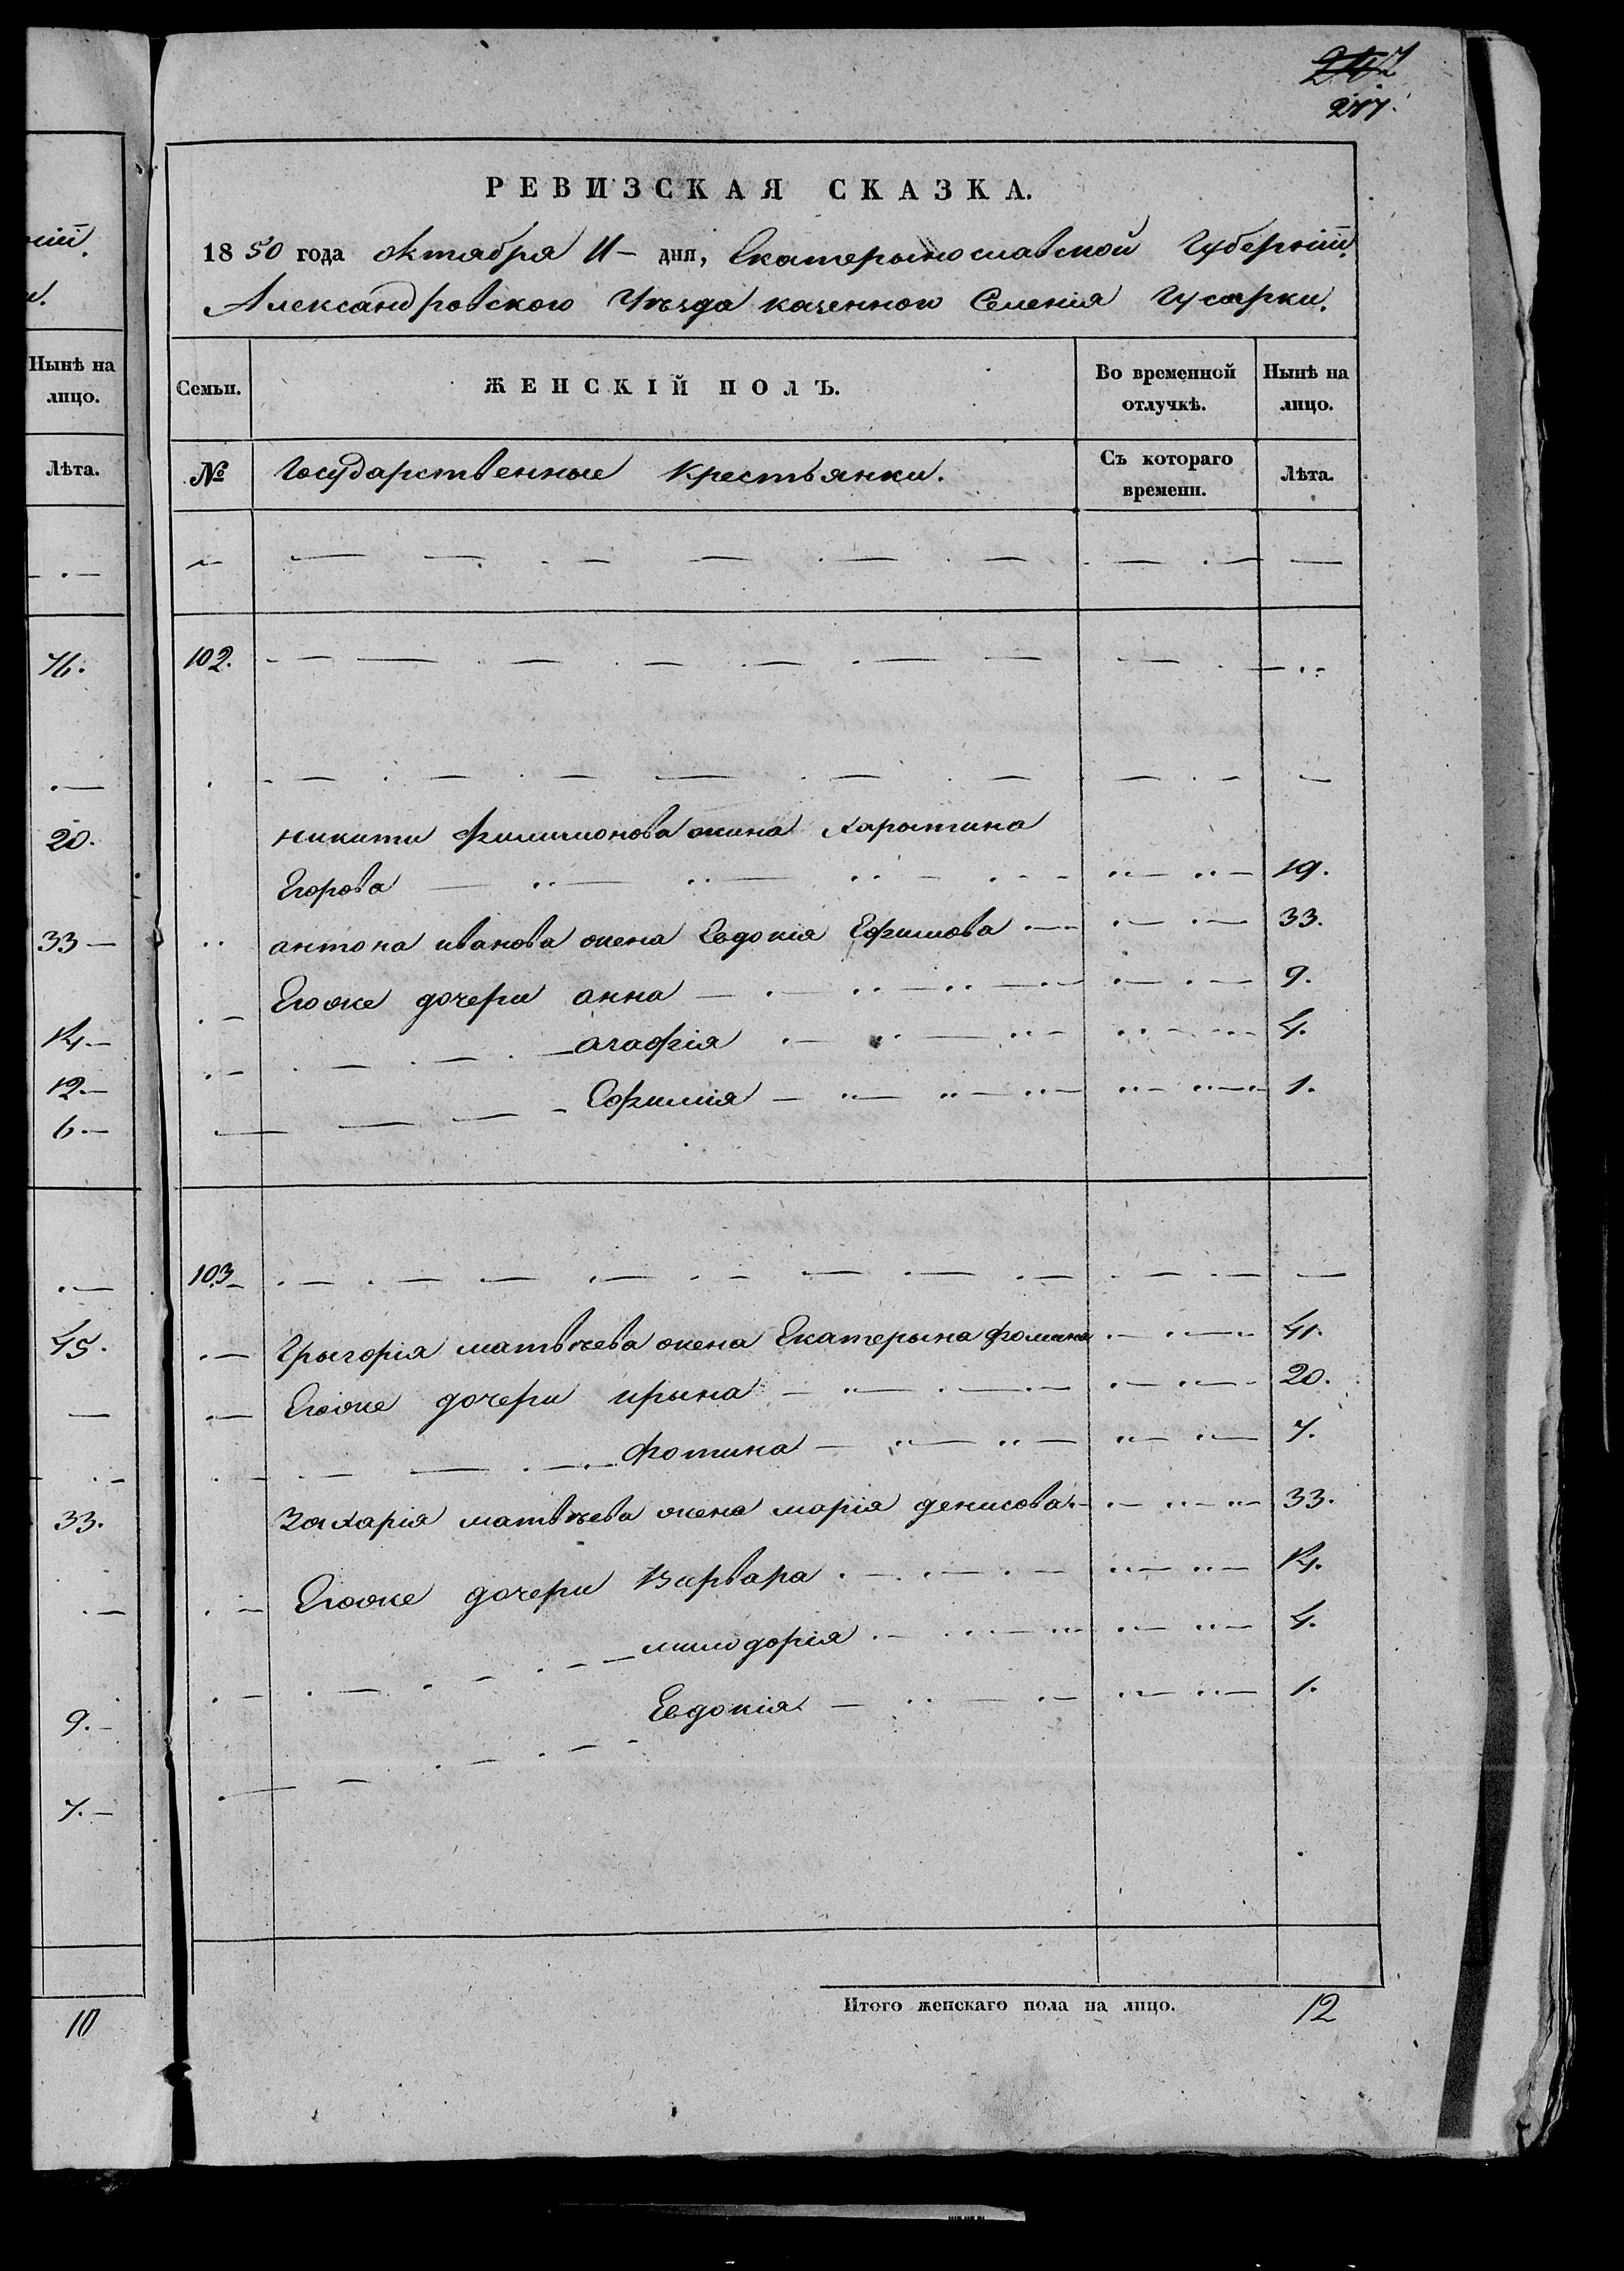 277.
РЕВИЗСКАЯ СКАЗКА.
1850 года октября 11- дня, Екатерынославской Губерніи.
Александровского Уѣзда казенного Селенія Гусарки.
Семьи.
ЖЕНСКІЙ ПОЛЪ.
Во временной отлучкѣ.
Нынѣ на лицо.
№
Государственные Крестьянки.
Съ котораго времени.
Лѣта.
102.
никити Филимонова жина Харытина
Егорова 19.
антона иванова жена Евдокія Ефимова 33.
Егоже дочери анна 9.
агафія 4.
Ефимія 1.
103
Грыгорія матвѣева жена Екатерына фомина 41.
Егоже дочери ирына 20.
фотина 7.
Захарія матвѣева жена марія денисова 33.
Егоже дочери Варвара 14.
милодорія 4.
Евдокія 1.
Итого женскаго пола на лицо. 12
Нынѣ на
лицо.
Лѣта.
76.
20.
33
14
12
6
45.
33.
9.
7.
10